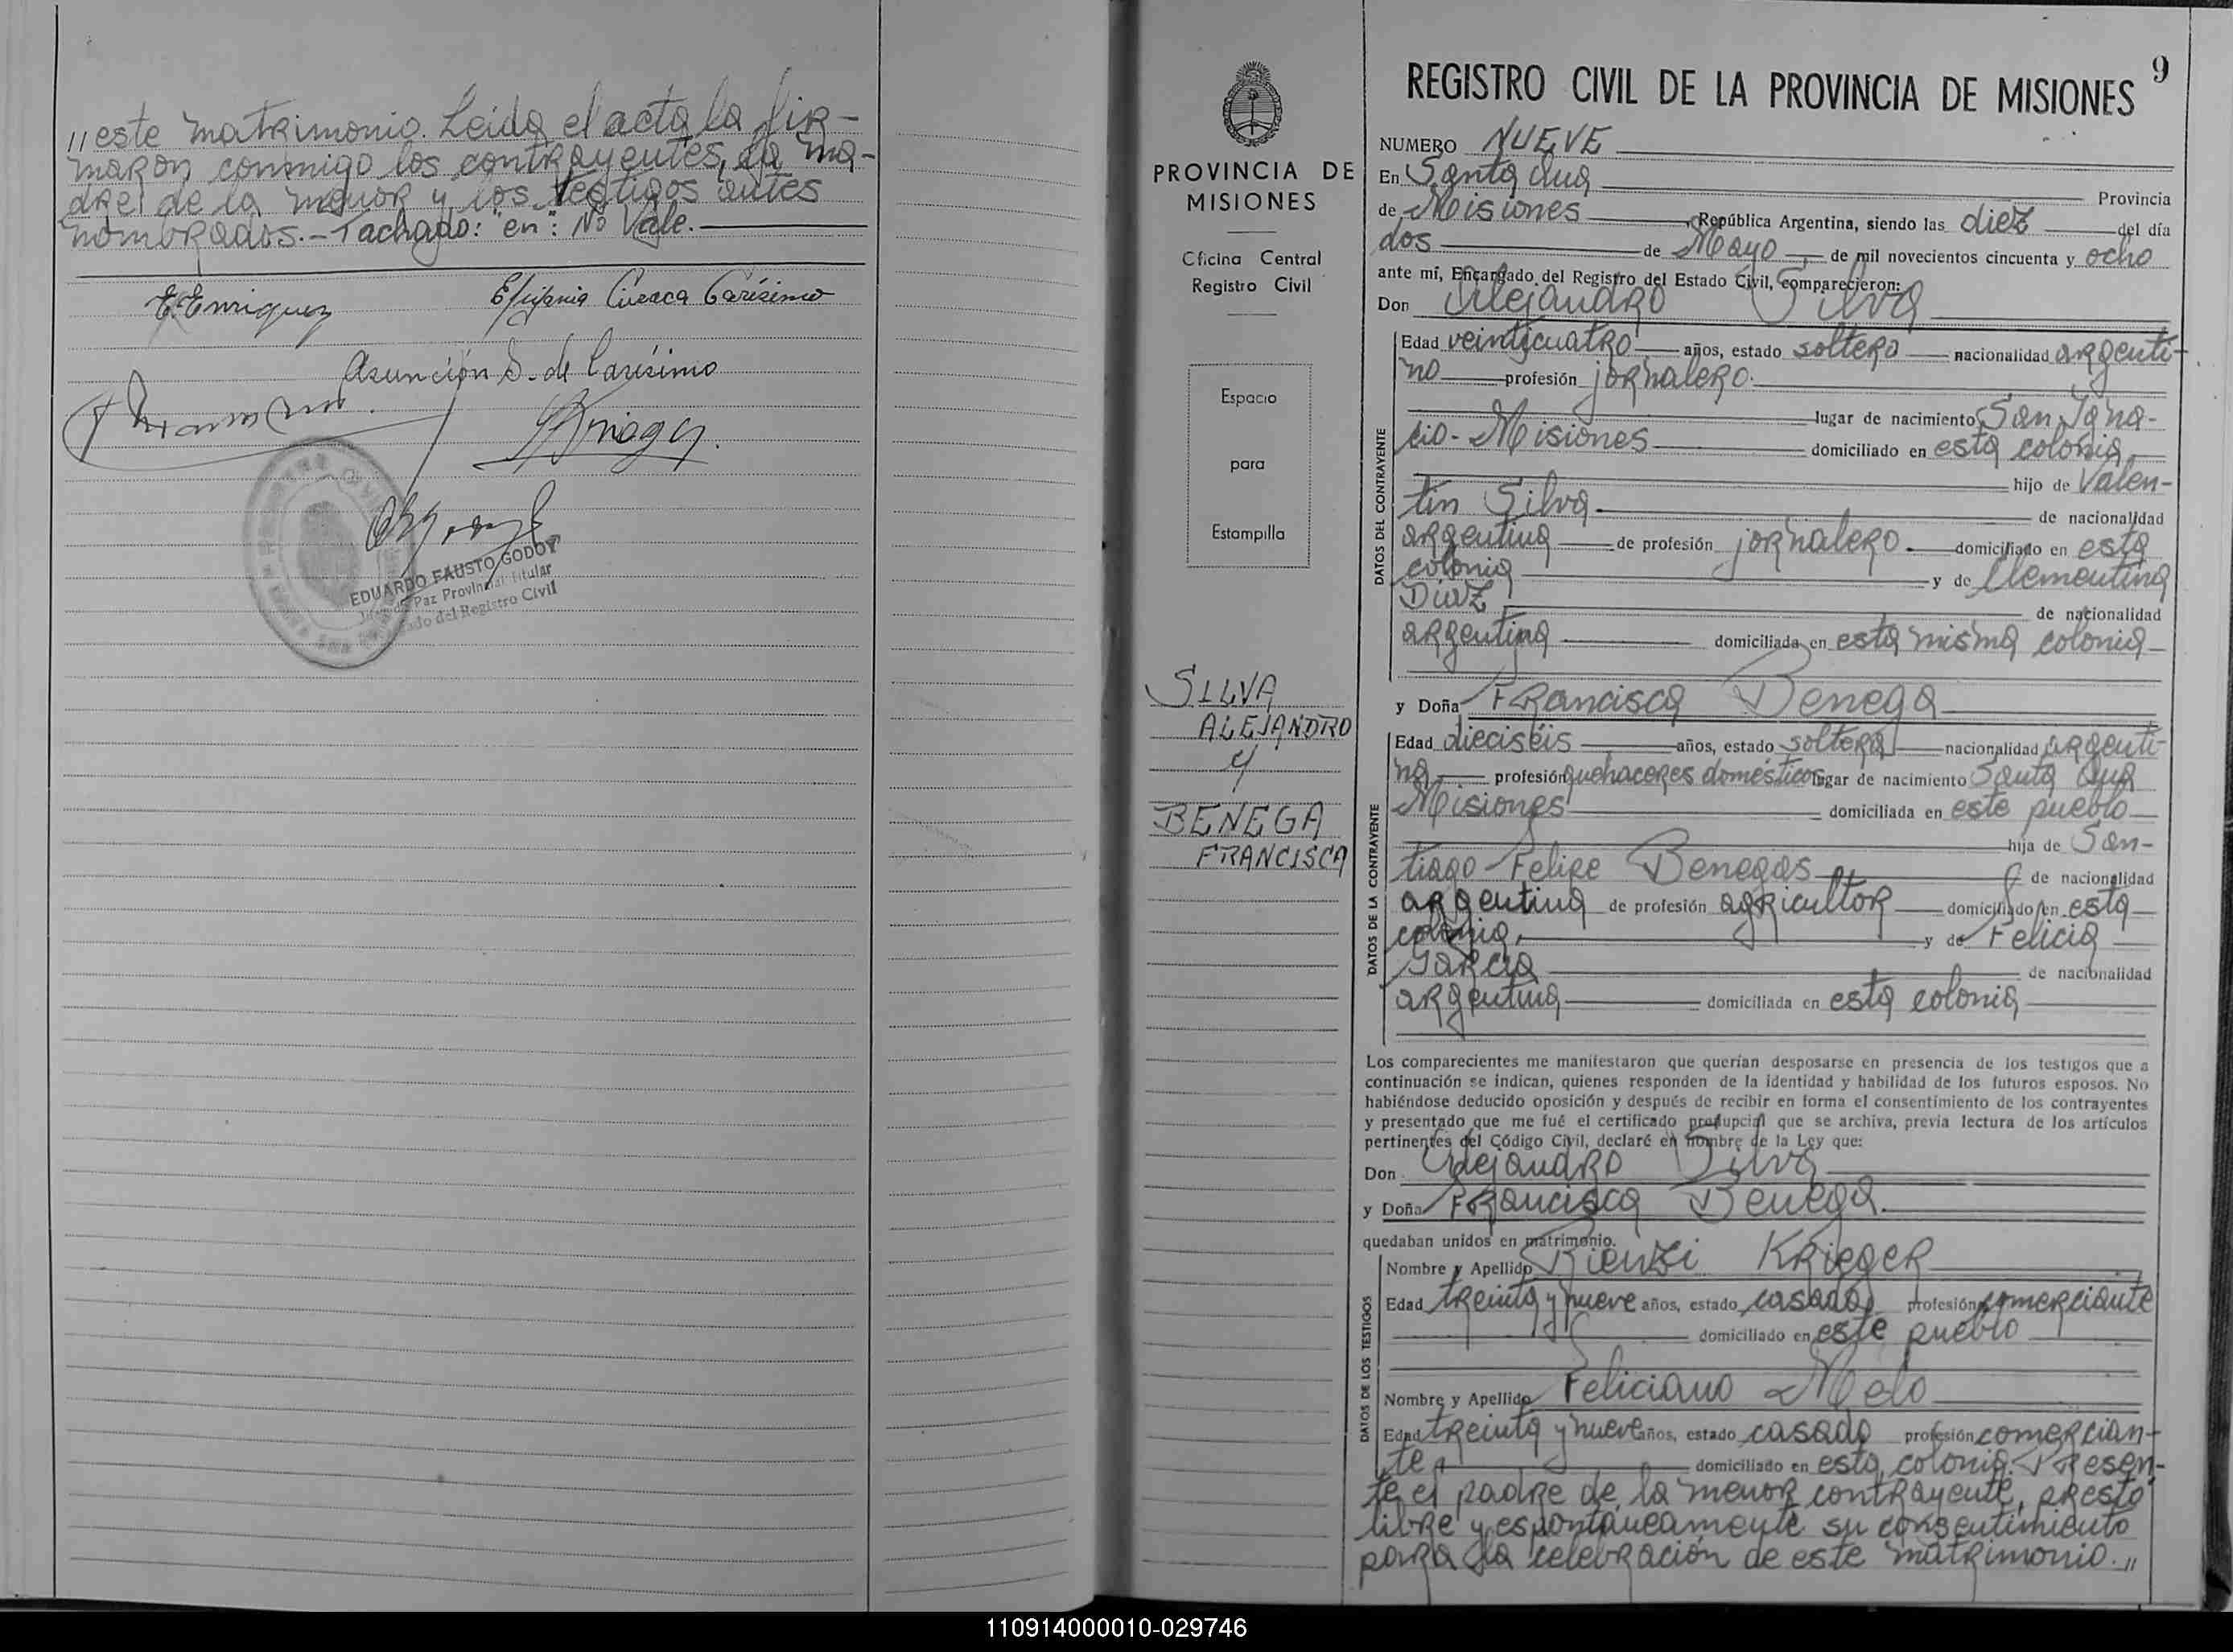 "este matrimonio. Leida el acta la fir-
maron conmigo los contrayentes, la ma-
dre de la menor y los testigos antes
nombrados.- Tachado: "en": No Vale.
E. Enriquez
Efigenia Ciriaca Carísimo
Asunción S. de Carísimo
EDUARDO FAUSTO GODOY
Juez de Paz Provincial Titular
Encargado del Registro Civil
PROVINCIA DE
MISIONES
Oficina Central
Registro Civil
Espacio
para
Estampilla
SILVA
ALEJANDRO
y
BENEGA
FRANCISCA
9
REGISTRO CIVIL DE LA PROVINCIA DE MISIONES
NUMERO NUEVE
En Santa Ana Provincia
de Misiones, República Argentina, siendo las diez del día
dos de Mayo de mil novecientos cincuenta y ocho
ante mí, Encargado del Registro del Estado Civil, comparecieron:
Don Alejandro Silva
DATOS DEL CONTRAYENTE
Edad veinticuatro años, estado soltero nacionalidad argenti-
no profesión jornalero.
lugar de nacimiento San Igna-
cio - Misiones domiciliado en esta colonia,
hijo de Valen-
tin Silva de nacionalidad
argentina de profesión jornalero. domiciliado en esta
colonia y de Clementina
Diaz de nacionalidad
argentina domiciliada en esta misma colonia
y Doña Francisca Benega
DATOS DE LA CONTRAYENTE
Edad dieciséis años, estado soltera nacionalidad argenti-
na profesión quehaceres domésticos lugar de nacimiento Santa Ana
Misiones domiciliada en este pueblo
hija de San-
tiago Felipe Benegas de nacionalidad
argentina de profesión agricultor domiciliado en esta
colonia, y de Felicia
Garcia de nacionalidad
argentina domiciliada en esta colonia
Los comparecientes me manifestaron que querían desposarse en presencia de los testigos que a
continuación se indican, quienes responden de la identidad y habilidad de los futuros esposos. No
habiéndose deducido oposición y después de recibir en forma el consentimiento de los contrayentes
y presentado que me fué el certificado prenupcial que se archiva, previa lectura de los artículos
pertinentes del Código Civil, declaré en nombre de la Ley que:
Don Alejandro Silva
y Doña Francisca Benega.
quedaban unidos en matrimonio.
DATOS DE LOS TESTIGOS
Nombre y Apellido Rienzi Krieger
Edad treinta y nueve años, estado casado profesión comerciante
domiciliado en este pueblo
Nombre y Apellido Feliciano Melo
Edad treinta y nueve años, estado casado profesión comercian-
te domiciliado en esta colonia. Presen-
te el padre de la menor contrayente, prestó
libre y espontáneamente su consentimiento
para la celebración de este matrimonio. "
110914000010-029746